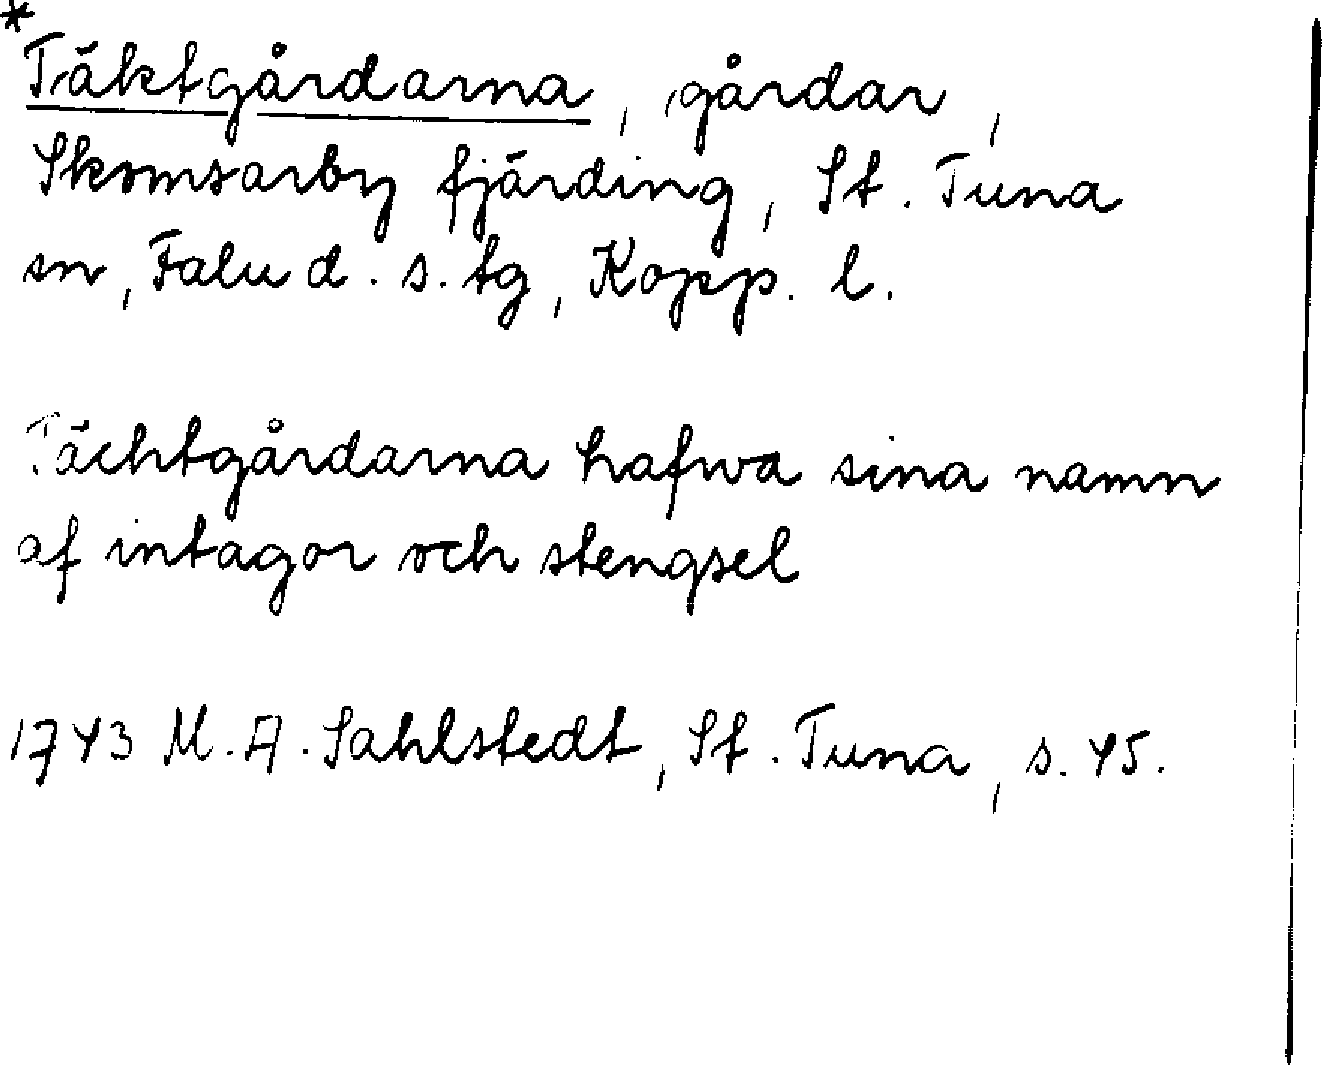 *
Täktgårdarna, gårdar,
Skomsarby fjärding, St. Tuna
sn, Falu d. s. tg, Kopp. l.
Tächtgårdarna hafwa sina namn
af intagor och stengsel
1743 M. A. Sahlstedt, St. Tuna, s. 45.